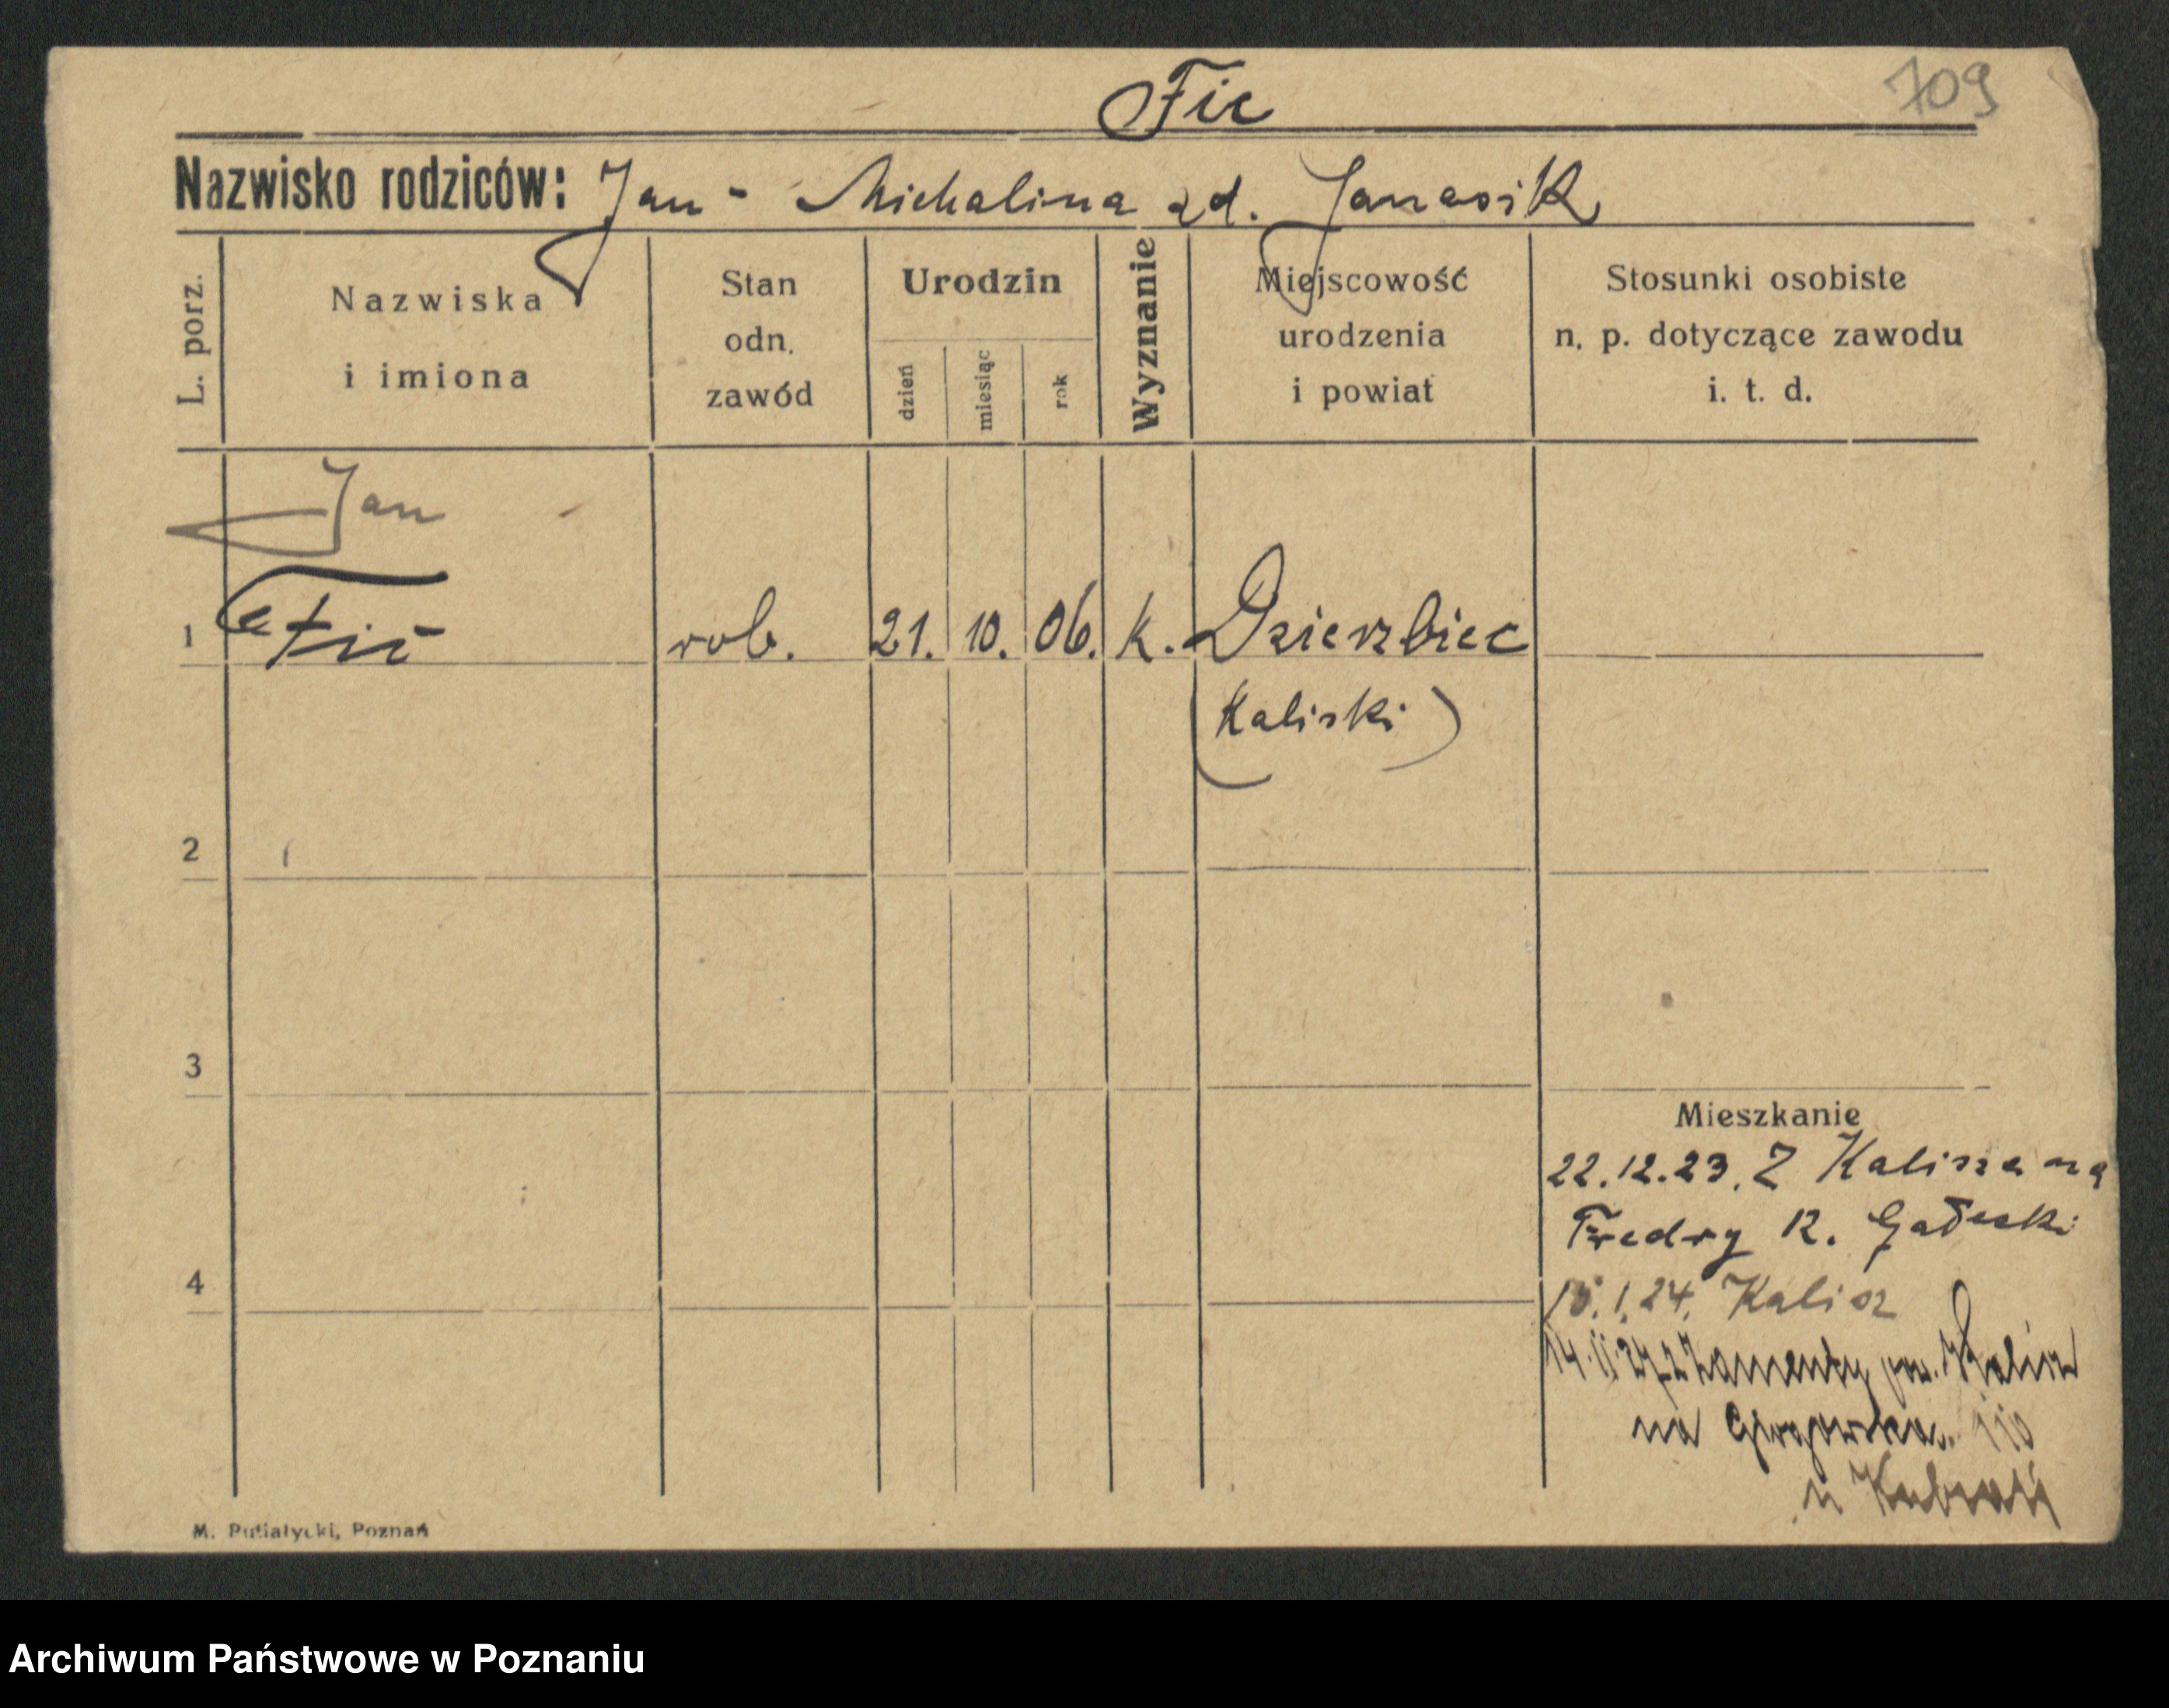 Fic
709
Nazwisko rodziców: Jan - Michalina zd. Janasik
L. porz.
Nazwiska
i imiona
Stan
odn.
zawód
Urodzin
dzień
miesiąc
rok
Wyznanie
Miejscowość
urodzenia
i powiat
Stosunki osobiste
n. p. dotyczące zawodu
i. t. d.
Jan
1 Fic rob. 21. 10. 06. k. Dzierzbiec
(Kaliski)
2
3
Mieszkanie
22.12.23. Z Kalisza na
Fredry 12. Gałecki
4
15.1.24. Kalisz
pow. Kalisz
na Głogowska. 110
u
M. Putiatycki, Poznań
Archiwum Państwowe w Poznaniu